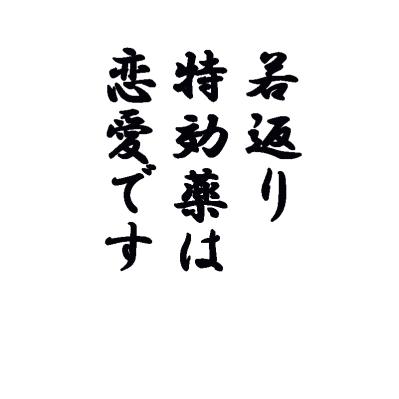 若返り
特効薬は
恋愛です